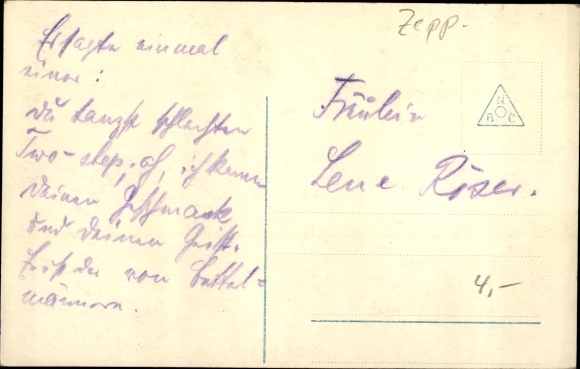 Zepp.
Er sagte einmal
einer:
Du tanzt schlechten
Two-step, ich kenne
deinen Geschmack
und deinen Geist.
du von Bettel=
männern.
N
B C
Fräulein
Lene Röser.
4,-